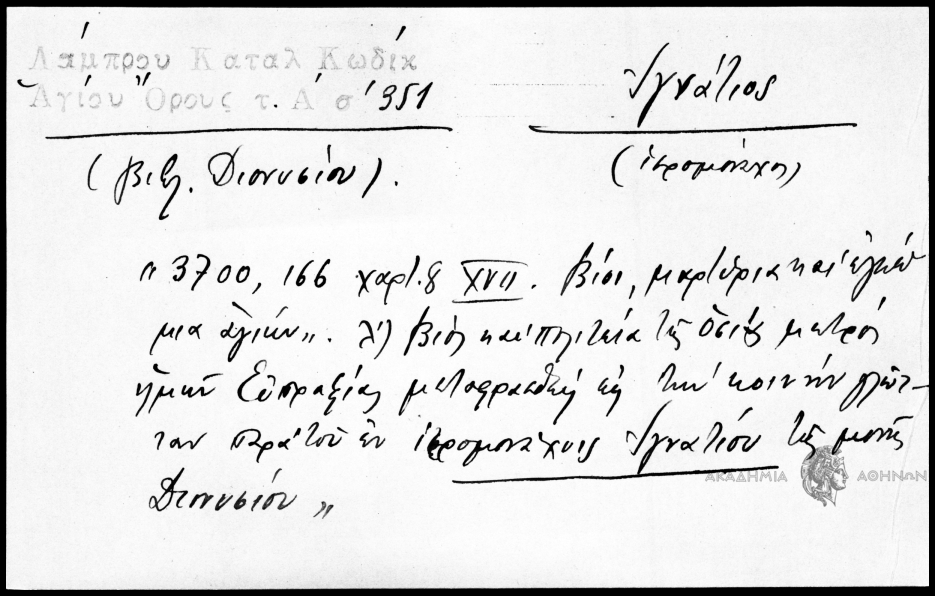 Λάμπρου Καταλ Κωδικ
Ἁγίου Ὄρους τ. Α σ 351
Ἰγνάτιος
(βιβλ. Διονυσίου).
(ἱερομόναχος)
"3700, 166 χαρτ. 8 XVII. Βίοι, μαρτύρια καὶ ἐγκώ
μια ἁγίων". λ') Βίος καὶ πολιτεία τῆς ὁσίας μητρὸς
ἡμῶν Εὐπραξίας μεταφρασθεὶς εἰς τὴν κοινὴν γλῶτ-
ταν παρὰ τοῦ ἐν ἱερομονάχοις Ἰγνατίου τῆς μονῆς
Διονυσίου"
ΑΚΑΔΗΜΙΑ ΑΘΗΝΩΝ